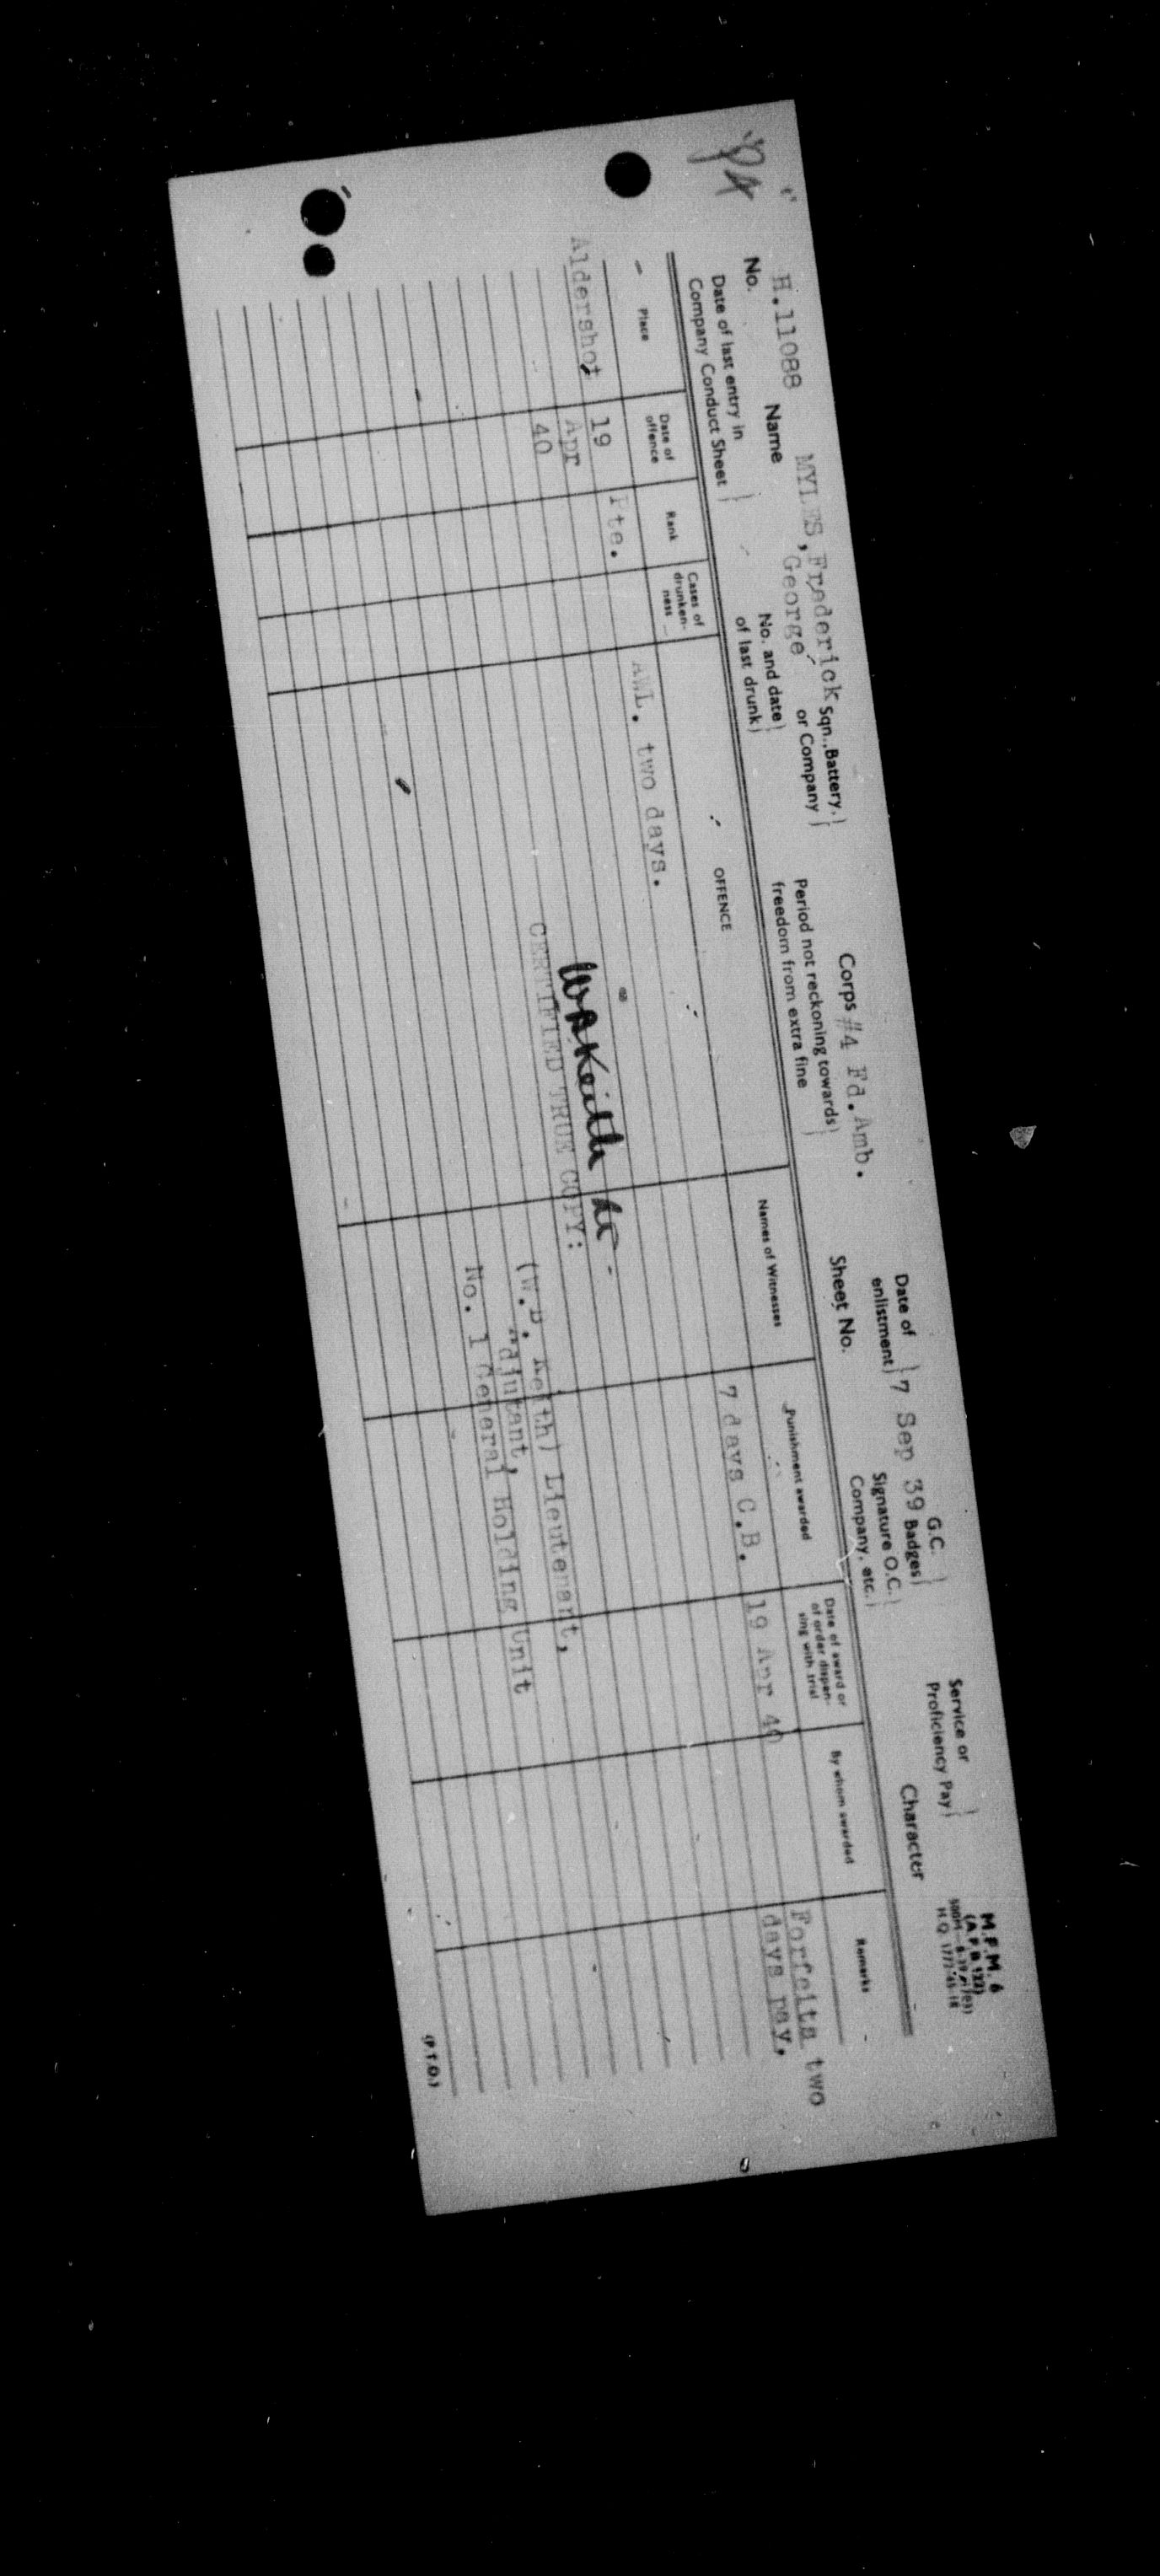 P4
M.F.M. 6
(A.F.B 122)
H.Q. 1772-45-18
No. H.11088 Name MYLES, Frederick George Sqn., Battery, or Company Corps #4 Fd. Amb. Date of enlistment 7 Sep 39 G.C. Badges Service or Proficiency Pay
Date of last entry in Company Conduct Sheet No. and date of last drunk Period not reckoning towards freedom from extra fine Sheet No. Signature O.C. Company, etc. Character
Place Date of offence Rank Cases of drunken-ness OFFENCE Names of Witnesses Punishment awarded Date of award or of order dispen-sing with trial By whom awarded Remarks
Aldershot 19 Apr 40 Pte. AWL. two days. 7 days C.B. 19 Apr 40 Forfeits two days pay.
CERTIFIED TRUE COPY:
(W.B. Keith) Lieutenant,
Adjutant,
No. 1 General Holding Unit
(P.T.O.)